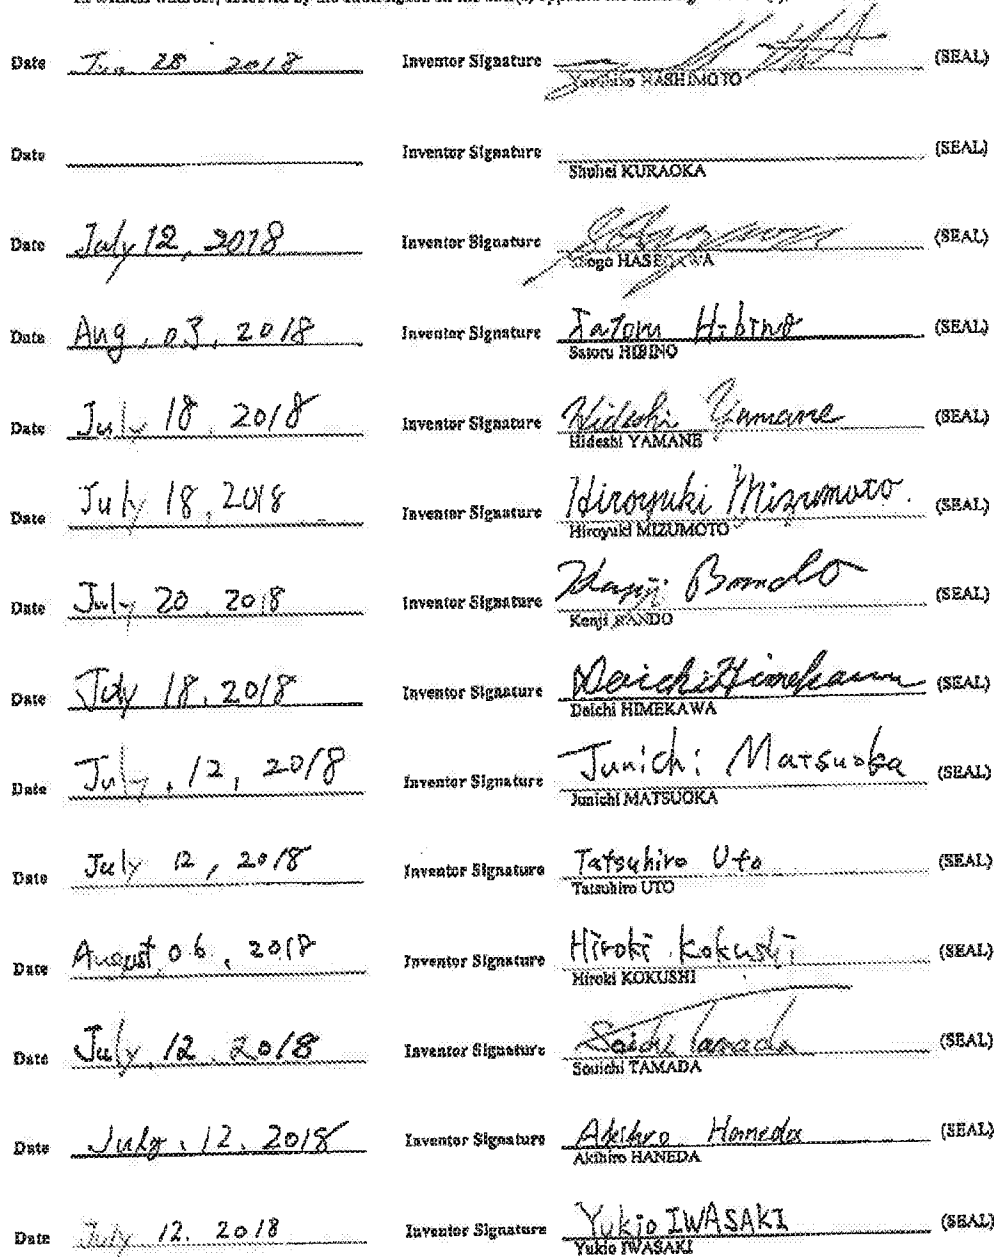 Date Jun 28 2018 Inventor Signature (SEAL)
HASHIMOTO
Date Inventor Signature (SEAL)
Shuhei KURAOKA
Date July 12, 2018 Inventor Signature (SEAL)
HASEGAWA
Date Aug. 03, 2018 Inventor Signature Satoru Hibino (SEAL)
Satoru HIBINO
Date July 18, 2018 Inventor Signature Hideshi Yamane (SEAL)
Hideshi YAMANE
Date July 18, 2018 Inventor Signature Hiroyuki Mizumoto. (SEAL)
Hiroyuki MIZUMOTO
Date July 20 2018 Inventor Signature Kenji Bando (SEAL)
Kenji BANDO
Date July 18, 2018 Inventor Signature Daichi Himekawa (SEAL)
Daichi HIMEKAWA
Date July, 12, 2018 Inventor Signature Junichi Matsuoka (SEAL)
Junichi MATSUOKA
Date July 12, 2018 Inventor Signature Tatsuhiro Uto (SEAL)
Tatsuhiro UTO
Date August 06, 2018 Inventor Signature Hiroki Kokushi (SEAL)
Hiroki KOKUSHI
Date July 12. 2018 Inventor Signature Soichi Tamada (SEAL)
Souichi TAMADA
Date July. 12. 2018 Inventor Signature Akihiro Haneda (SEAL)
Akihiro HANEDA
Date July 12. 2018 Inventor Signature Yukio IWASAKI (SEAL)
Yukio IWASAKI